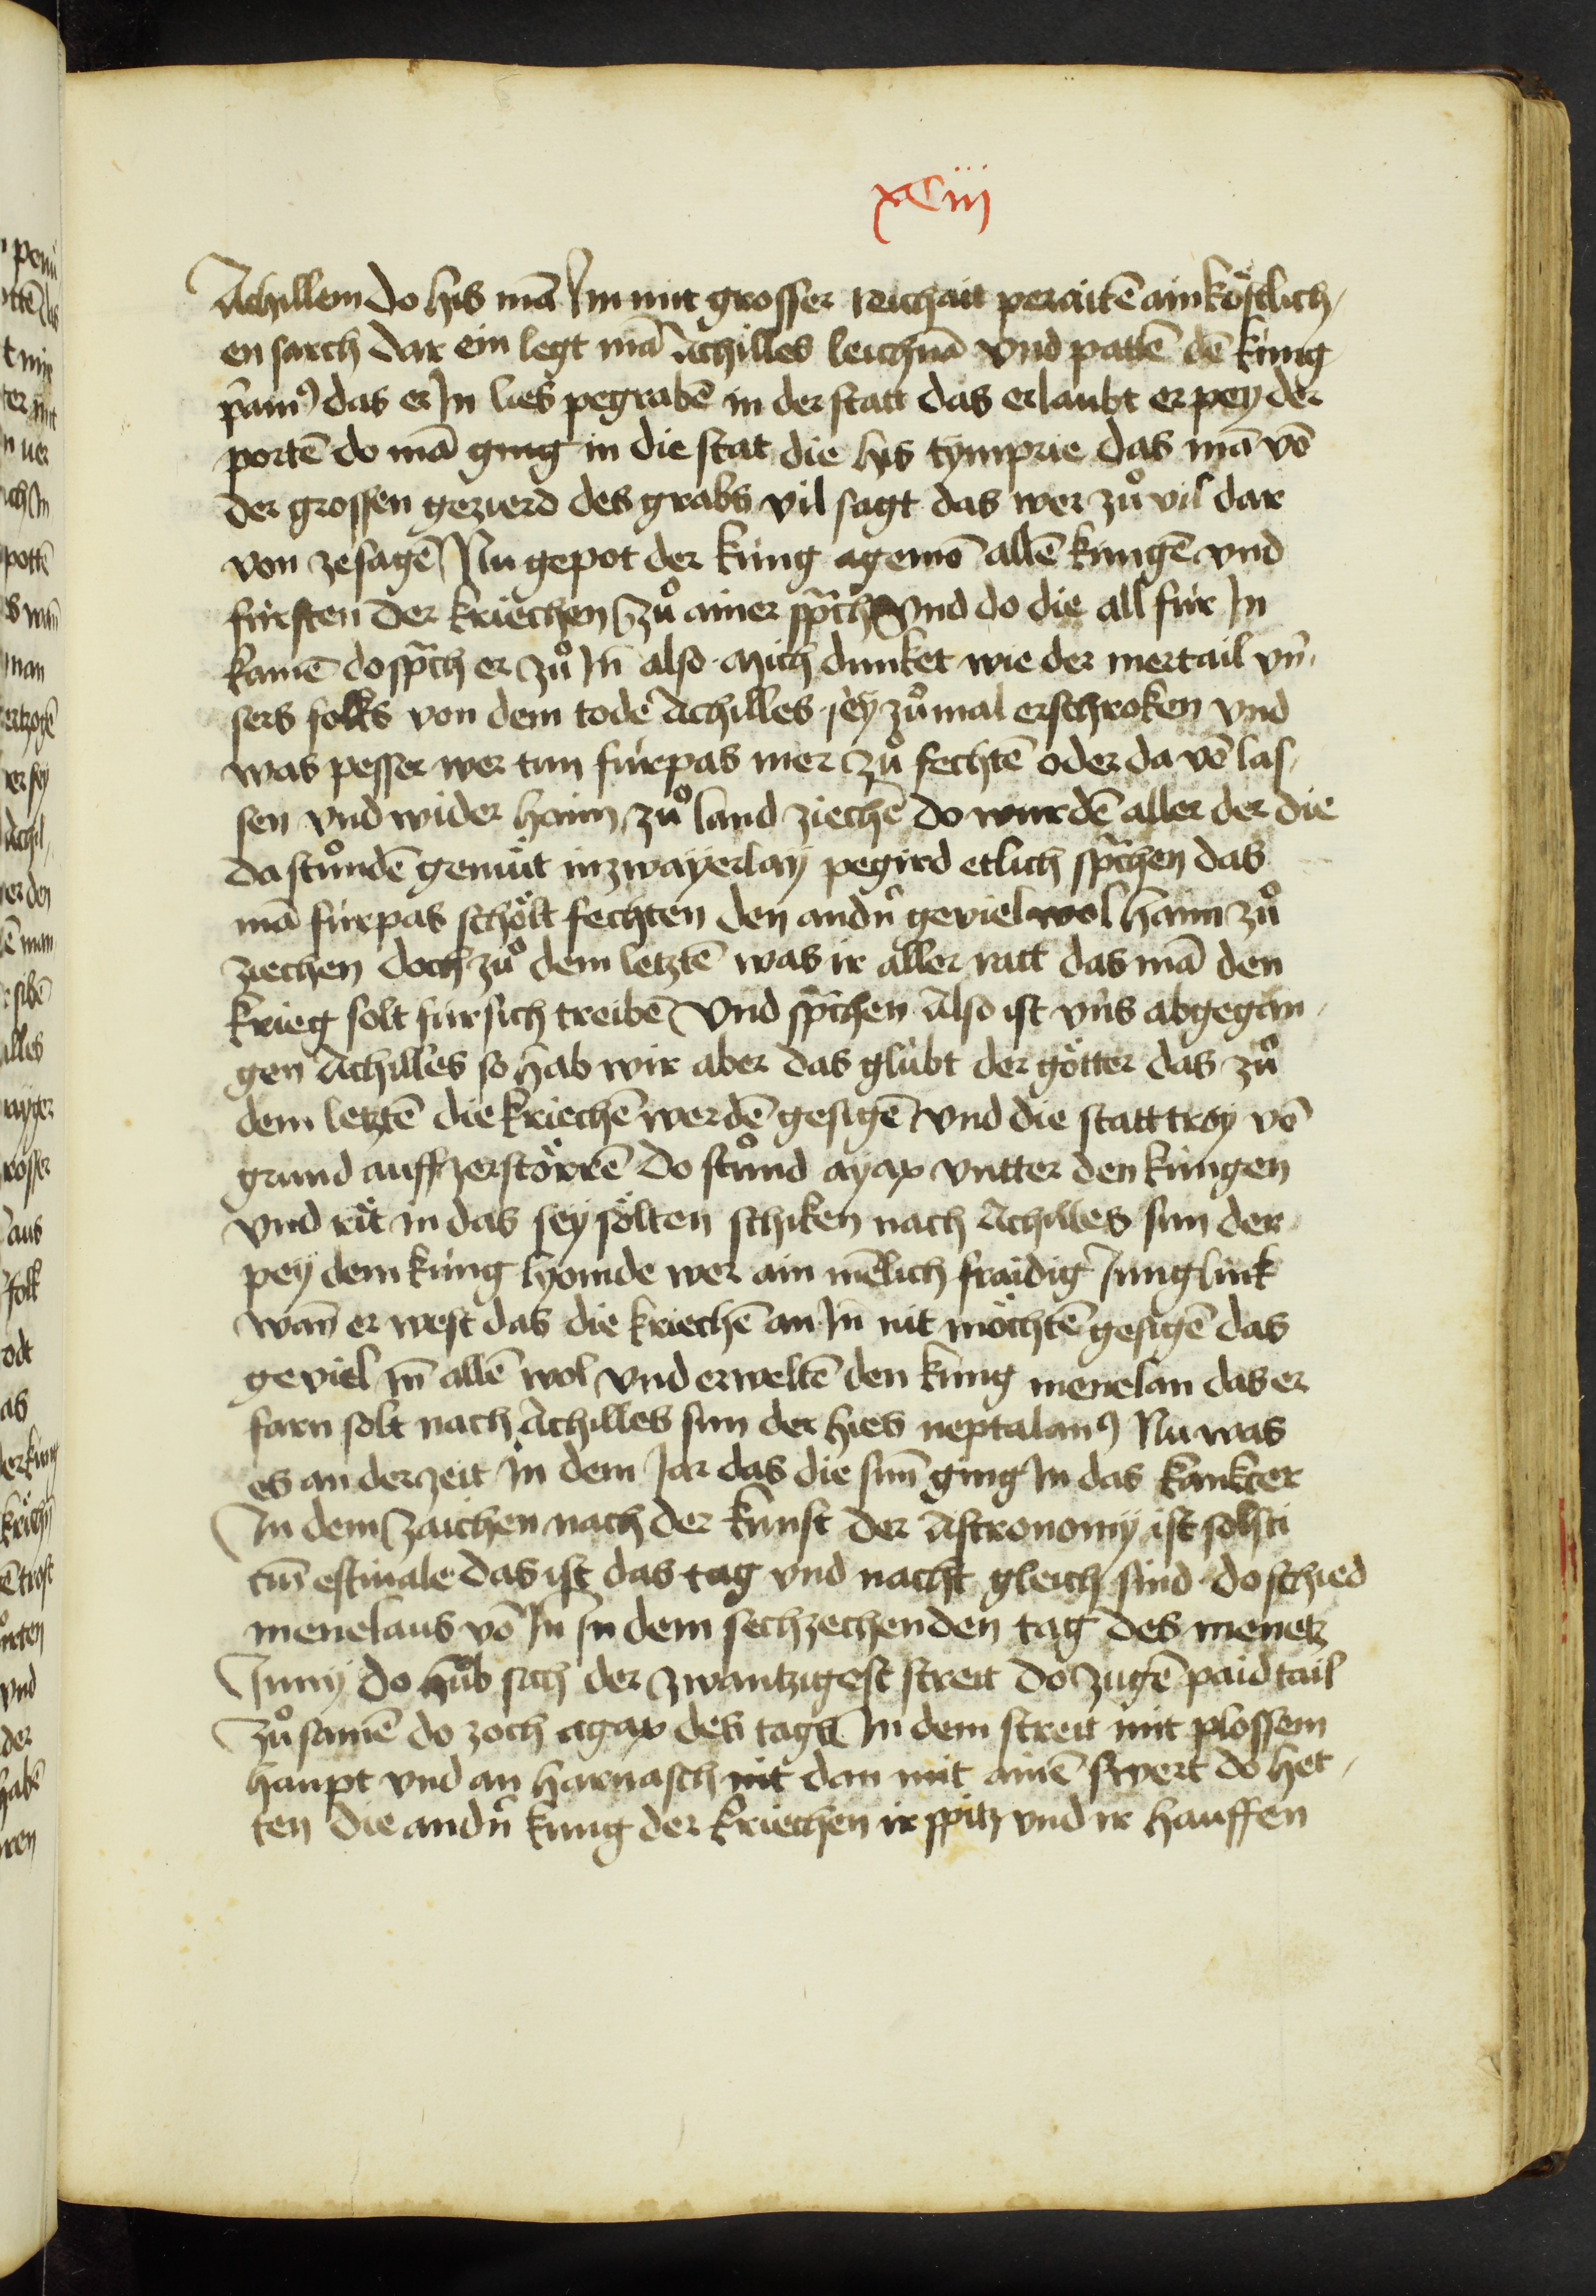 xCiii
Achillem do his mā Im mit grosser reichait peraitē ain köstlich,
en sarch dar ein legt mā Achilles leichnā vnd pattē dē kúng
pͥamꝰ das er In lies pegrabē in der statt das erlaubt er pey der
portē do mā ging in die stat die his tymprie das mā vō
der grossen gezierd des grabs vil sagt das wer zuͦ vil dar
von zesagē Nu gepot der kúng agemō allē kúngē vnd
fúrsten der kriechen zuͦ ainer spͣch vnd do die all fúr In
kamē do spͣch er zuͦ In̄ also mich dunket wie der mertail vn̄,
sers folks von dem tode Achilles sey zuͦmal erschroken vnd
was pesser wer tun fúrpas mer zuͦ fechtē oder da vō las,
sen vnd wider haim zuͦ land ziechē do wurdē aller der die
da stuͦndē gemút in zwayerlay pegird etlich spͣchen das
mā fúrpas schölt fechten den andn̄ geviel wol haim zuͦ
ziechen doch zuͦ dem letztē was ir aller ratt das mā den
krieg solt fúr sich treibē vnd spͣchen Also ist vn̄s abgegan,
gen Achilles so hab wir aber das glúbt der götter das zuͦ
dem letztē die kriechē werdē gesigē vnd die statt troy vō
grund auff zerstörrē do stuͦnd ayax vntter den kúngen
vnd rit in das sey sölten schiken nach Achilles sun der
pey dem kúng lyomde wer ain mēlich fraidig Junglink
wan̄ er west das die kriechē an In̄ nit möchtē gesigē das
geviel In̄ allē wol vnd erweltē den kúng menelau das er
farn solt nach Achilles sun der hies neptalanꝰ Nu was
es an der zeit in dem Jar das die sun̄ ging In das kankcer
In dem zaichen nach der kunst der Astronomy ist solsti
cium̄ estiuale das ist das tag vnd nacht gleich sind do schied
menelaus vō In̄ In dem sechzechenden tag des menetz
Juny do huͦb sich der zwantzigest streit do zugē paid tail
zuͦ samē do zoch agax des tags In dem streit mit plossem
haupt vnd an harnasch nit dan mit ainē swert do het,
ten die andn̄ kúng der kriechen ir spitz vnd ir hauffen